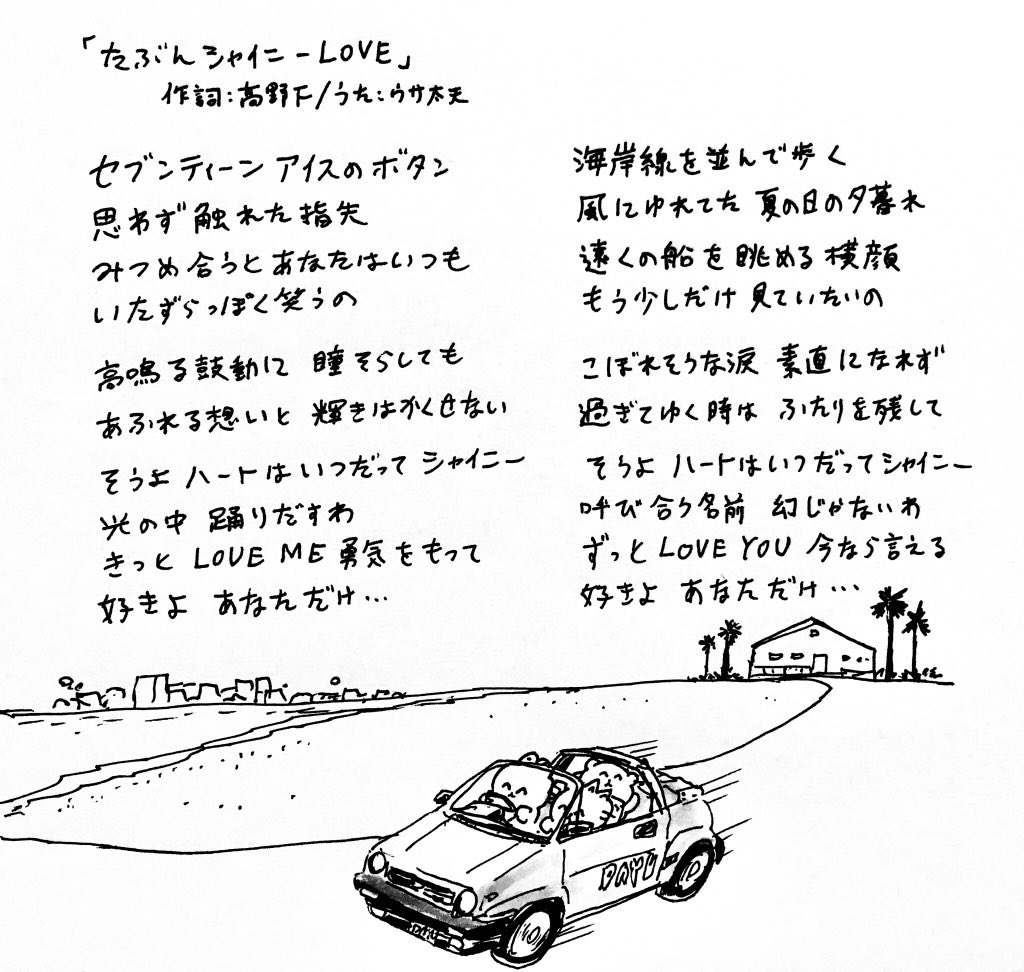 「たぶんシャイニーLOVE」
作詞:高野下/うた:ウサ太天
セブンティーン アイスのボタン
思わず 触れた 指先
みつめ合うと あなたはいつも
いたずらっぽく 笑うの
高鳴る鼓動に 瞳そらしても
あふれる想いと 輝きはかくせない
そうよ ハートはいつだって シャイニー
光の中 踊りだすわ
きっと LOVE ME 勇気をもって
好きよ あなただけ…
海岸線を並んで歩く
風にゆれてた 夏の日の夕暮れ
遠くの船を眺める横顔
もう少しだけ 見ていたいの
こぼれそうな涙 素直になれず
過ぎてゆく時は ふたりを残して
そうよ ハートはいつだってシャイニー
呼び合う名前 幻じゃないわ
ずっと LOVE YOU 今なら言える
好きよ あなただけ…